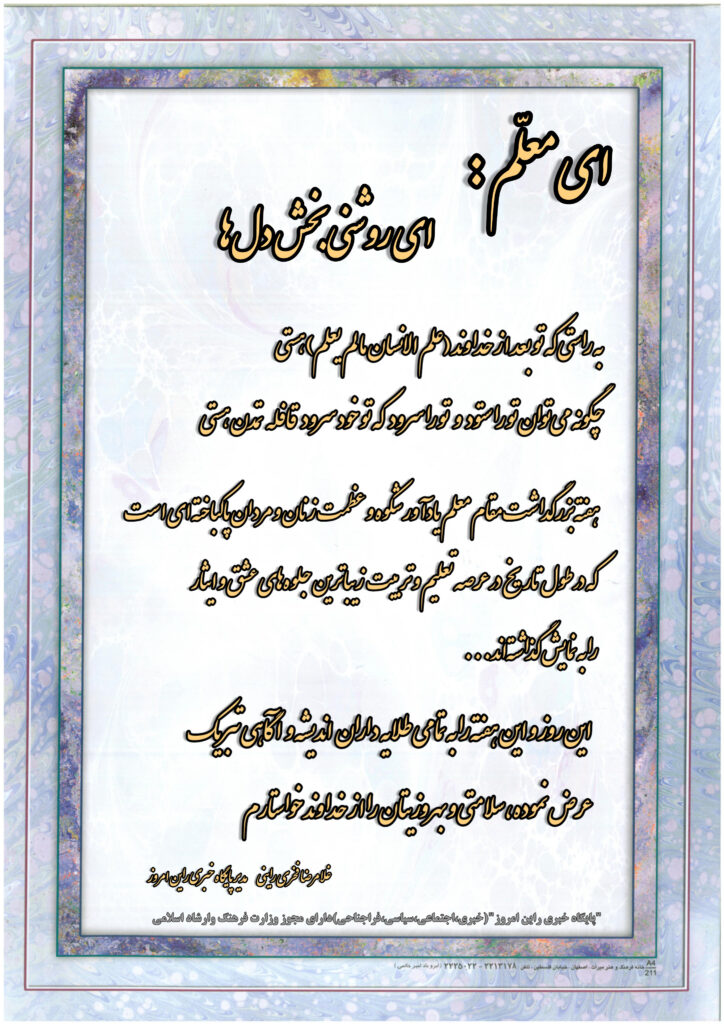 ای معلّم :
ای روشنی بخش دل ها
به راستی که تو بعد از خداوند (علم الانسان مالم یعلم) هستی
چگونه می توان تو را ستود و تو را سرود که تو خود سرود قافله تمدن هستی
هفته بزرگداشت مقام معلم یادآور شکوه و عظمت زنان و مردان پاکباخته ای است
که در طول تاریخ در عرصه تعلیم و تربیت زیباترین جلوه های عشق و ایثار
را به نمایش گذاشته اند...
این روز و این هفته را به تمامی طلایه داران اندیشه و آگاهی تبریک
عرض نموده، سلامتی و بهروزیتان را از خداوند خواستارم
غلامرضا فخری راینی مدیر پایگاه خبری راین امروز
"پایگاه خبری راین امروز"(خبری،اجتماعی،سیاسی،فراجناحی)دارای مجوز وزارت فرهنگ وارشاد اسلامی
خانه فرهنگ و هنر میراث - اصفهان - خیابان فلسطین - تلفن ۲۲۱۳۱۷۸ - ۲۲۲۵۰۲۲
A4
211